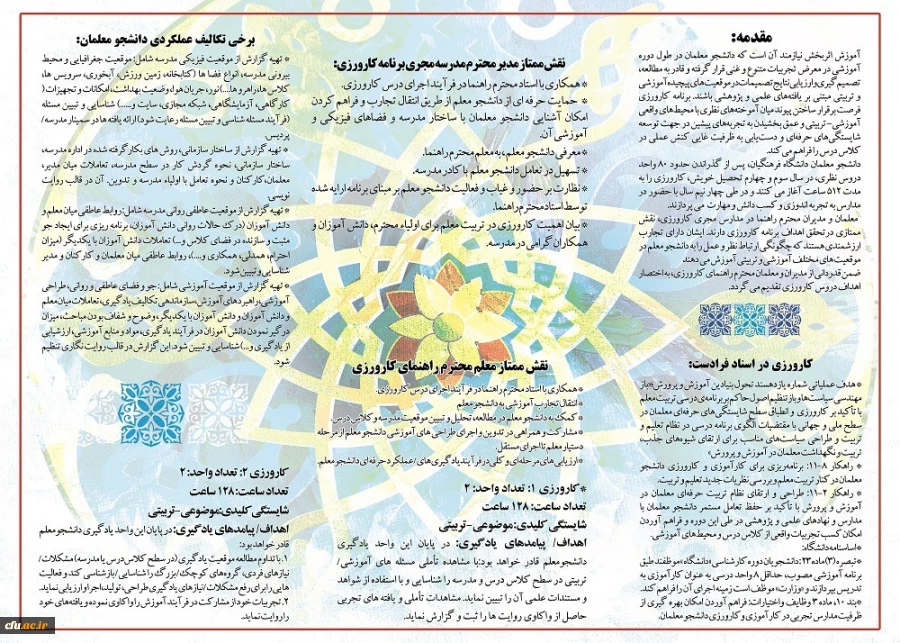 مقدمه:
آموزش اثربخش نیازمند آن است که دانشجو معلمان در طول دوره
آموزشی در معرض تجربیات متنوع و غنی قرار گرفته و قادر به مطالعه،
تصمیم گیری و ارزیابی نتایج تصمیمات در موقعیت های پیچیده آموزشی
و تربیتی مبتنی بر یافته های علمی و پژوهشی باشند. برنامه کارورزی
فرصت برقرار ساختن پیوند میان آموخته های نظری با محیط های واقعی
آموزشی- تربیتی و عمق بخشیدن به تجربه های پیشین در جهت توسعه
شایستگی های حرفه ای و دست یابی به ظرفیت غایی کنش عملی در
کلاس درس را فراهم می کند.
دانشجو معلمان دانشگاه فرهنگیان، پس از گذراندن حدود ۸۰ واحد
دروس نظری، در سال سوم و چهارم تحصیل خویش، کارورزی را به
مدت ۵۱۲ ساعت آغاز می کنند و در طی چهار نیم سال با حضور در
مدارس به تجربه اندوزی و کسب دانش و مهارت می پردازند.
معلمان و مدیران محترم راهنما در مدارس مجری کارورزی، نقش
ممتازی در تحقق اهداف برنامه کارورزی دارند. ایشان دارای تجارب
ارزشمندی هستند که چگونگی ارتباط نظر و عمل را به دانشجو معلم در
موقعیت های مختلف آموزشی و تربیتی آموزش می دهند
ضمن قدردانی از مدیران و معلمان محترم راهنمای کارورزی، به اختصار
اهداف دروس کارورزی تقدیم می گردد.
کارورزی در اسناد فرادست:
* هدف عملیاتی شماره یازده سند تحول بنیادین آموزش و پرورش «باز
مهندسی سیاست ها و باز تنظیم اصول حاکم بر برنامه ی درسی تربیت معلم
با تأکید بر کارورزی و انطباق سطح شایستگی های حرفه ای معلمان در
سطح ملی و جهانی با مقتضیات الگوی برنامه درسی در نظام تعلیم و
تربیت و طراحی سیاست های مناسب برای ارتقای شیوه های جذب،
تربیت و نگهداشت معلمان در آموزش و پرورش»
* راهکار ۸-۱۱: برنامه ریزی برای کارآموزی و کارورزی دانشجو
معلمان در کنار تربیت معلم و بررسی نظریات جدید تعلیم و تربیت.
* راهکار ۲-۱۱: طراحی و ارتقای نظام تربیت حرفه ای معلمان در
آموزش و پرورش با تأکید بر حفظ تعامل مستمر دانشجو معلمان با
مدارس و نهادهای علمی و پژوهشی در طی این دوره و فراهم آوردن
امکان کسب تجربیات واقعی از کلاس درس و محیط های آموزشی.
* اساسنامه دانشگاه:
*تبصره(۳) ماده ۲۳: دانشجویان دوره کارشناسی «دانشگاه» موظفند طبق
برنامه آموزشی مصوب، حداقل ۸ واحد درسی به عنوان کارآموزی به
تدریس بپردازند و «وزارت» موظف است زمینه اجرای آن را فراهم کند.
*بند ۱۰، ماده ۳ وظایف و اختیارات: فراهم آوردن امکان بهره گیری از
ظرفیت مدارس تجربی در کارآموزی و کارورزی دانشجو معلمان.
نقش ممتاز مدیر محترم مدرسه مجری برنامه کارورزی:
* همکاری با استاد محترم راهنما در فرآیند اجرای درس کارورزی.
* حمایت حرفه ای از دانشجو معلم از طریق انتقال تجارب و فراهم کردن
امکان آشنایی دانشجو معلمان با ساختار مدرسه و فضاهای فیزیکی و
آموزشی آن.
* معرفی دانشجو معلم، به معلم محترم راهنما.
* تسهیل در تعامل دانشجو معلم با کادر مدرسه.
* نظارت بر حضور و غیاب و فعالیت دانشجو معلم بر مبنای برنامه ارایه شده
توسط استاد محترم راهنما.
* بیان اهمیت کارورزی در تربیت معلم برای اولیاء محترم، دانش آموزان و
همکاران گرامی در مدرسه.
نقش ممتاز معلم محترم راهنمای کارورزی
* همکاری با استاد محترم راهنما در فرآیند اجرای درس کارورزی.
* انتقال تجارب آموزشی به دانشجو معلم
* کمک به دانشجو معلم در مطالعه، تحلیل و تبیین موقعیت مدرسه و کلاس درس.
* مشارکت و همراهی در تدوین و اجرای طراحی های آموزشی دانشجو معلم از مرحله
دستیار معلم تا اجرای مستقل.
* ارزیابی های مرحله ای و کلی در فرآیند یادگیری های/ عملکرد حرفه ای دانشجو معلم.
* کارورزی ۱: تعداد واحد: ۲
تعداد ساعت: ۱۲۸ ساعت
شایستگی کلیدی: موضوعی-تربیتی
اهداف/ پیامدهای یادگیری: در پایان این واحد یادگیری
دانشجو معلم قادر خواهد بود: با مشاهده تأملی مسئله های آموزشی/
تربیتی در سطح کلاس درس و مدرسه را شناسایی و با استفاده از شواهد
و مستندات علمی آن را تبیین نماید. مشاهدات تأملی و یافته های تجربی
حاصل از واکاوی روایت ها را ثبت و گزارش نماید.
برخی تکالیف عملکردی دانشجو معلمان:
* تهیه گزارش از موقعیت فیزیکی مدرسه شامل: موقعیت جغرافیایی و محیط
بیرونی مدرسه، انواع فضا ها (کتابخانه، زمین ورزش، آبخوری، سرویس ها،
کلاس ها، راهرو ها....)نور، جریان هوا، وضعیت بهداشت، امکانات و تجهیزات (
کارگاهی، آزمایشگاهی، شبکه مجازی، سایت و.....) شناسایی و تبیین مسئله
(فرآیند مسئله شناسی و تبیین مسئله رعایت شود) ارائه یافته ها در سمینار مدرسه/
پردیس.
* تهیه گزارش از ساختار سازمانی، روش های بکار گرفته شده در اداره مدرسه،
ساختار سازمانی، نحوه گردش کار در سطح مدرسه، تعاملات میان مدیر،
معلمان، کارکنان و نحوه تعامل با اولیاء مدرسه و تدوین. آن در قالب روایت
نویسی
* تهیه گزارش از موقعیت عاطفی روانی مدرسه شامل: روابط عاطفی میان معلم و
دانش آموزان (درک حالات روانی دانش آموزان، برنامه ریزی برای ایجاد جو
مثبت و سازنده در فضای کلاس و...) تعاملات دانش آموزان با یکدیگر (میزان
احترام، همدلی، همکاری و...)، روابط عاطفی میان معلمان و کارکنان و مدیر
شناسایی و تبیین شود.
* تهیه گزارش از موقعیت آموزشی شامل: جو و فضای عاطفی و روانی، طراحی
آموزشی، راهبردهای آموزش، سازماندهی تکالیف یادگیری، تعاملات میان معلم
و دانش آموزان و دانش آموزان با یکدیگر، وضوح و شفاف بودن مباحث، میزان
درگیر نمودن دانش آموزان در فرآیند یادگیری، مواد و منابع آموزشی، ارزشیابی
از یادگیری و...) شناسایی و تبیین شود. این گزارش در قالب روایت نگاری تنظیم
شود.
کارورزی ۲: تعداد واحد: ۲
تعداد ساعت: ۱۲۸ ساعت
شایستگی کلیدی: موضوعی-تربیتی
اهداف/ پیامدهای یادگیری: در پایان این واحد یادگیری دانشجو معلم
قادر خواهد بود:
۱. با تداوم مطالعه موقعیت یادگیری (در سطح کلاس درس یا مدرسه) مشکلات/
نیازهای فردی، گروه های کوچک/ بزرگ را شناسایی/ بازشناسی کند و فعالیت
هایی را برای رفع مشکلات/ نیازهای یادگیری طراحی، تولید، اجرا و ارزیابی نماید.
۲. تجربیات خود از مشارکت در فرآیند آموزش را واکاوی نموده و یافته های خود
را روایت نماید.
cfu.ac.ir